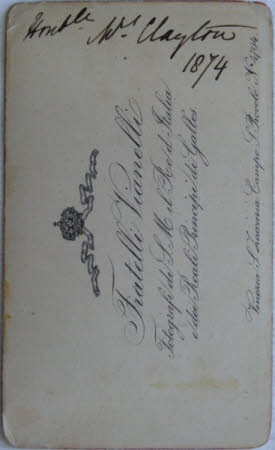 Honble Mrs Clayton
1874
Fratelli Vianelli
Fotografi di S. M. il Re d'Italia
e dei Reali Principi di Galles
Venezia S. Zaccaria Campo S. Provolo N.º 4704